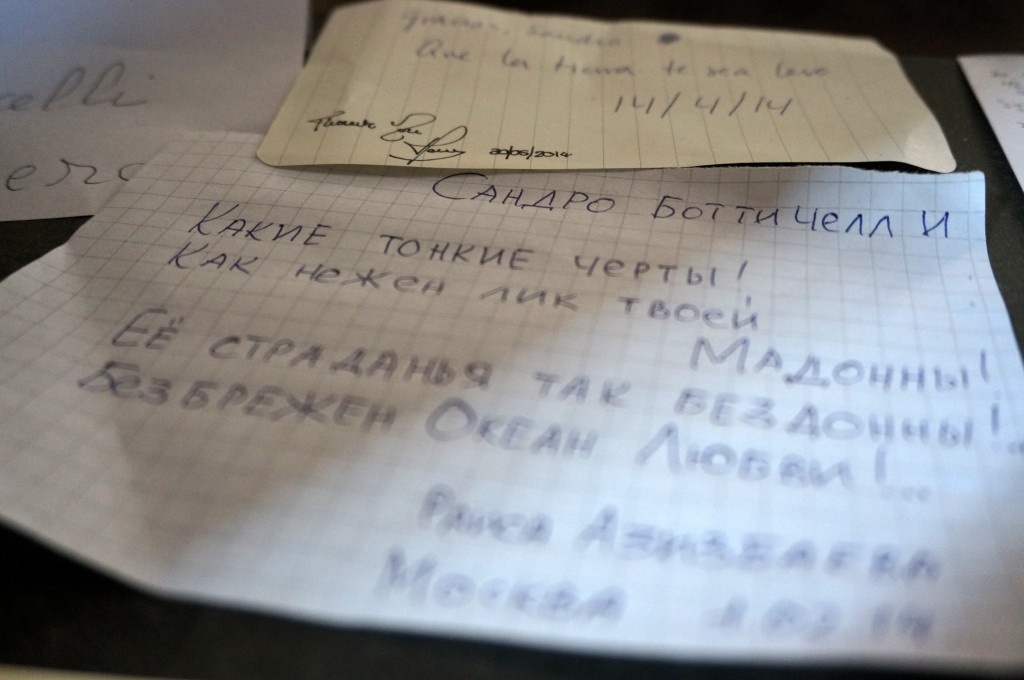 elli
Gracias, Sandro
Que la tierra te sea leve
14/4/14
20/05/2014
Сандро Боттичелли
Какие тонкие черты!
Как нежен лик твоей
Мадонны!
Её страданья так бездонны!..
Безбрежен Океан Любви!...
Раиса Азизбаева
Москва